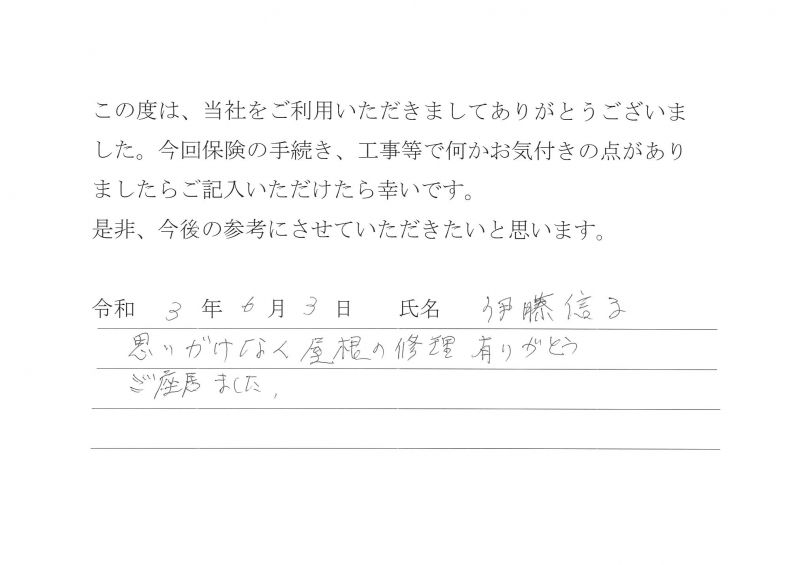 この度は、当社をご利用いただきましてありがとうございま
した。今回保険の手続き、工事等で何かお気付きの点があり
ましたらご記入いただけたら幸いです。
是非、今後の参考にさせていただきたいと思います。
令和 3 年 6 月 3 日 氏名 伊藤信子
思いがけなく屋根の修理 有りがとう
ご座居ました。